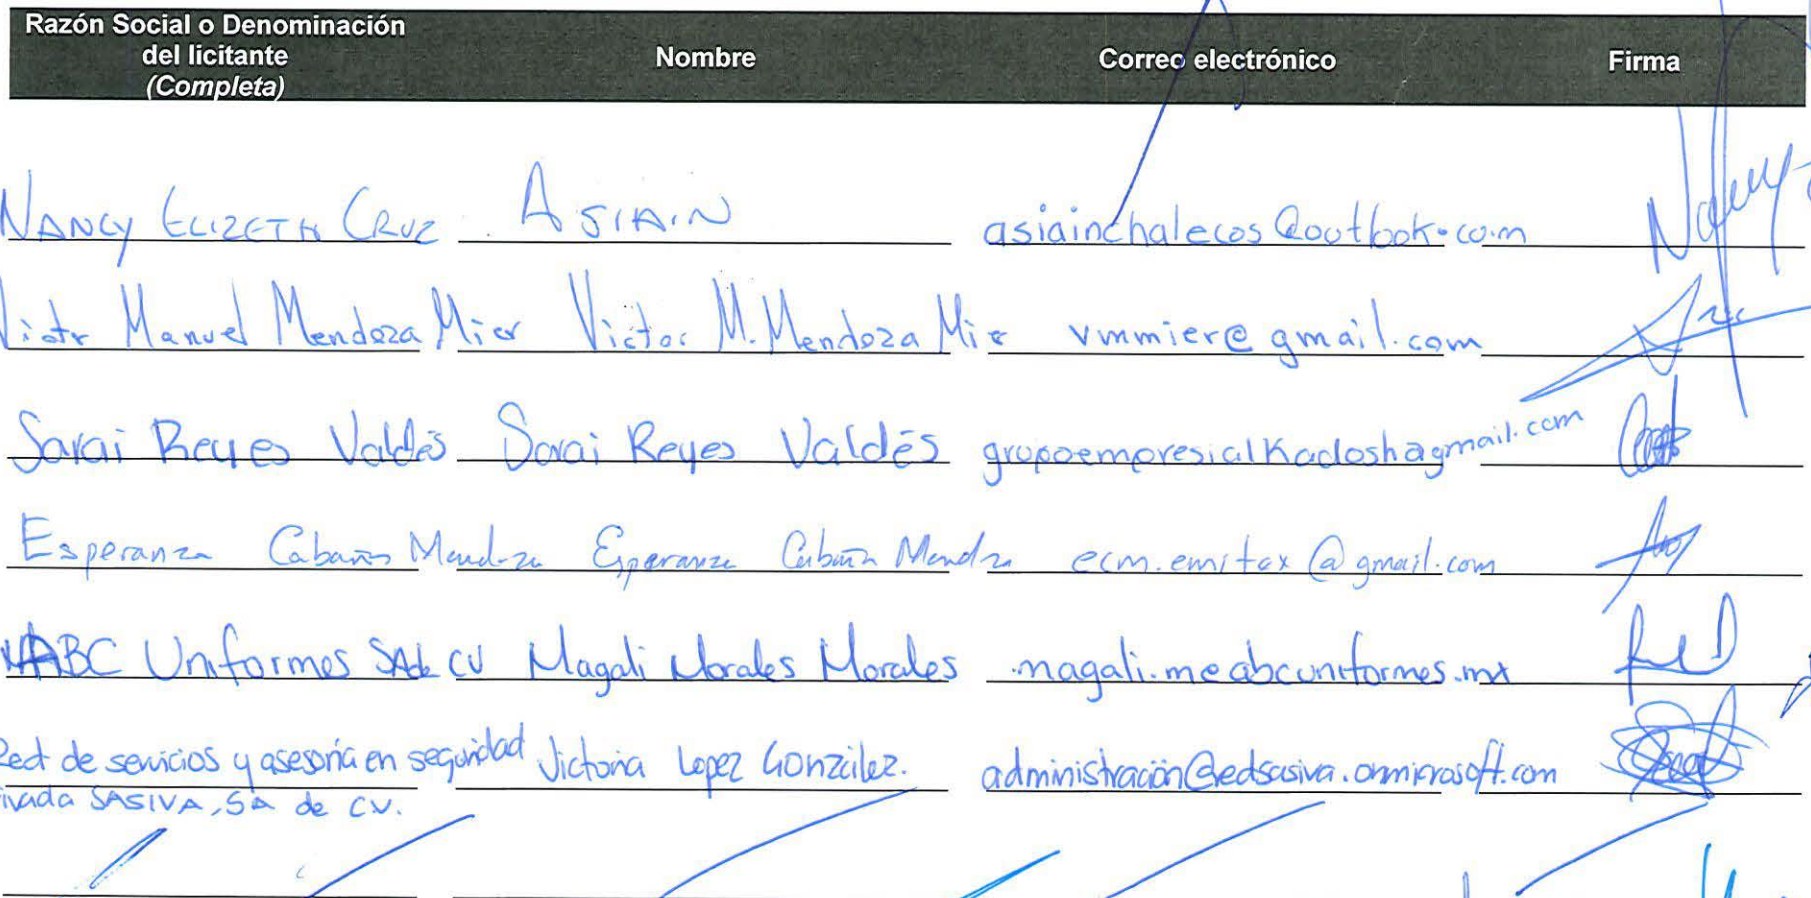 Razón Social o Denominación
del licitante
(Completa)
Nombre
Correo electrónico
Firma
NANCY ELIZETH CRUZ ASIAIN asiainchalecos@outlook.com
Manuel Mendoza Mier Victor M. Mendoza Mier vmmier@gmail.com
Sarai Reyes Valdés Sarai Reyes Valdés grupoempresialKadosh@gmail.com
Esperanza Cabañas Mendoza Esperanza Cabaña Mendza ecm.emitax@gmail.com
ABC Uniformes SA de CV Magali Morales Morales magali.m@abcuniformes.mx
Red de servicios y asesoría en seguridad Victoria Lopez González. administración@redsasiva.onmicrosoft.com
SASIVA, SA de CV.